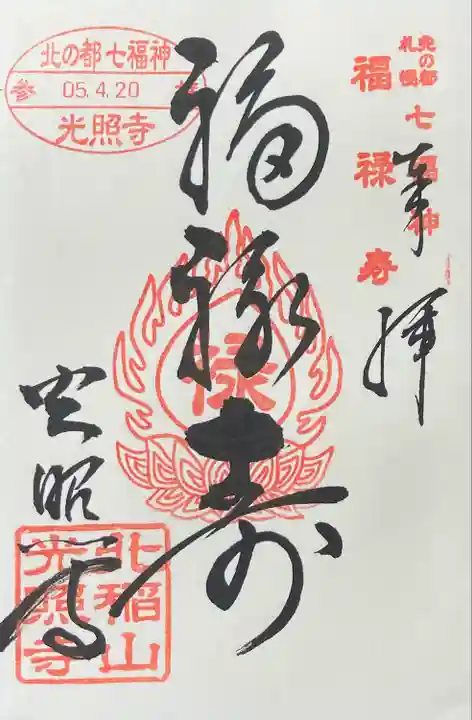 北の都
札幌
七福神
福禄寿
奉拝
福禄寿
禄
北の都七福神
参
05.4.20
光照寺
光照寺
北稲山
光照寺